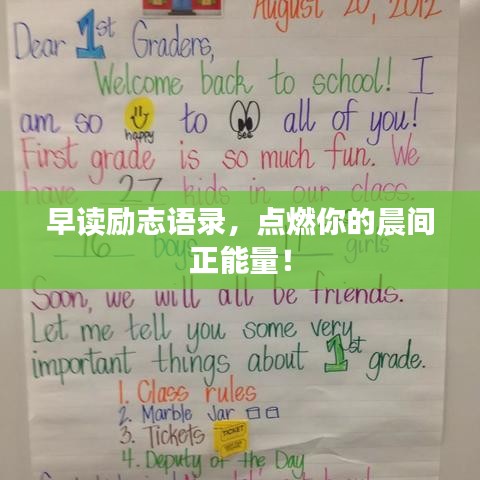 August 20, 2012
Dear 1st Graders,
Welcome back to school! I
am so happy to see all of you!
First grade is so much fun. We
have 27 kids in our class.
早读励志语录，点燃你的晨间
正能量！
16 boys girls
Soon, we will all be friends.
Let me tell you some very
important things about 1st grade.
1. Class rules
2. Marble Jar
3. Tickets TICKET
4. Deputy of the Day